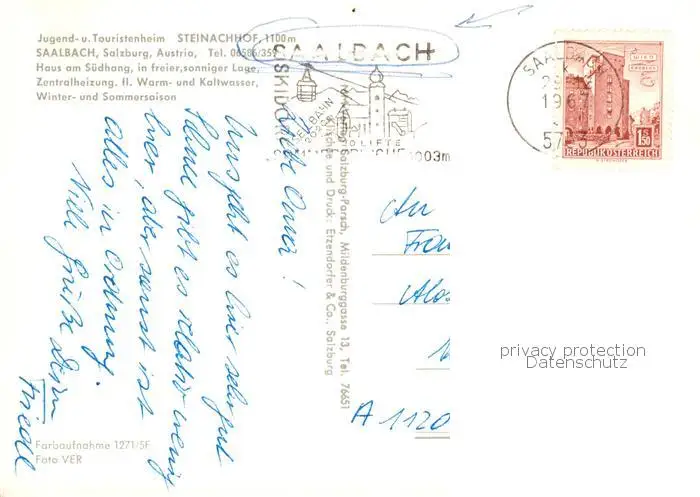 Jugend- u. Touristenheim STEINACHHOF, 1100 m
SAALBACH, Salzburg, Austria, Tel. 06585/359
Haus am Südhang, in freier, sonniger Lage,
Zentralheizung. fl. Warm- und Kaltwasser,
Winter- und Sommersaison
SAALBACH
SKIDORF
SEILBAHN
LIFTE
1003m
SAALBACH
1967
5753
WIEN
1.50
REPUBLIK ÖSTERREICH
Liebe Oma!
Uns geht es hier sehr gut
Schnee gibt es relativ wenig
hier, aber sonst ist
alles in Ordnung.
Viele Grüße Deine
Friedl
Salzburg-Parsch, Mildenburggasse 13, Tel. 76651
und Druck: Etzendorfer & Co., Salzburg
An
Frau
Alo
A 1120
privacy protection
Datenschutz
Farbaufnahme 1271/5F
Foto VER